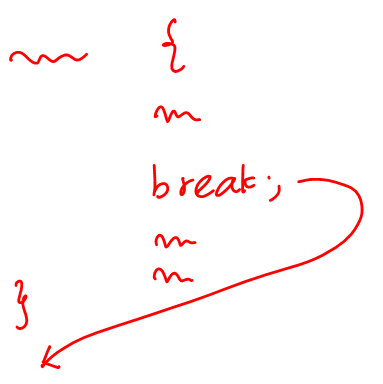 {
break;
}